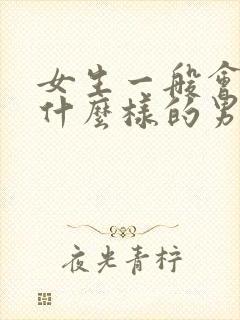 女生一般會
什麼樣的男
夜光青柠